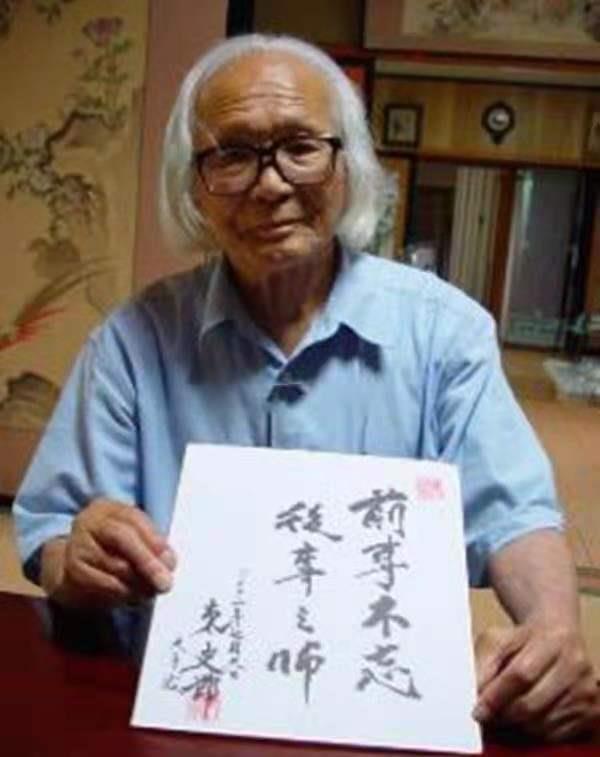 前事不忘
後事之師
東史郎